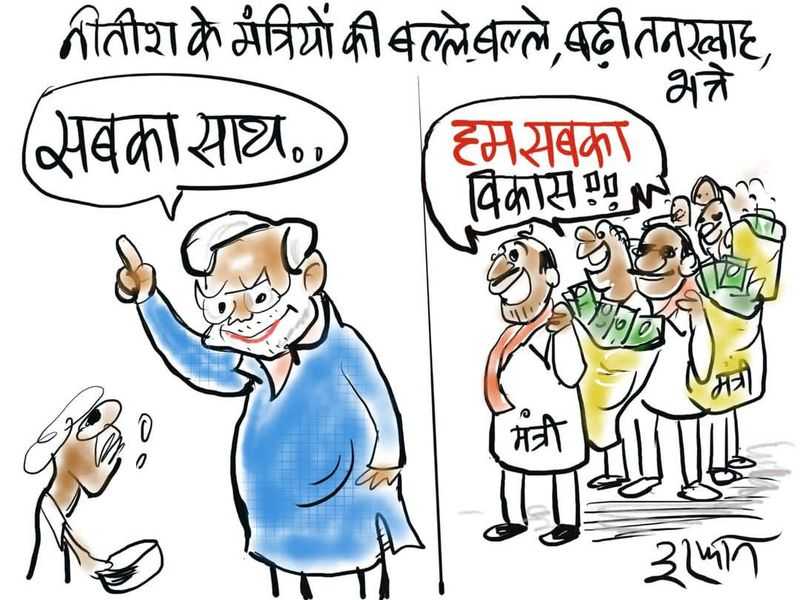 नीतीश के मंत्रियों की बल्ले,बल्ले, बढ़ी तनख्वाह,
भत्ते
सबका साथ..
हम सबका
विकास !!
मंत्री
मंत्री
इरफान